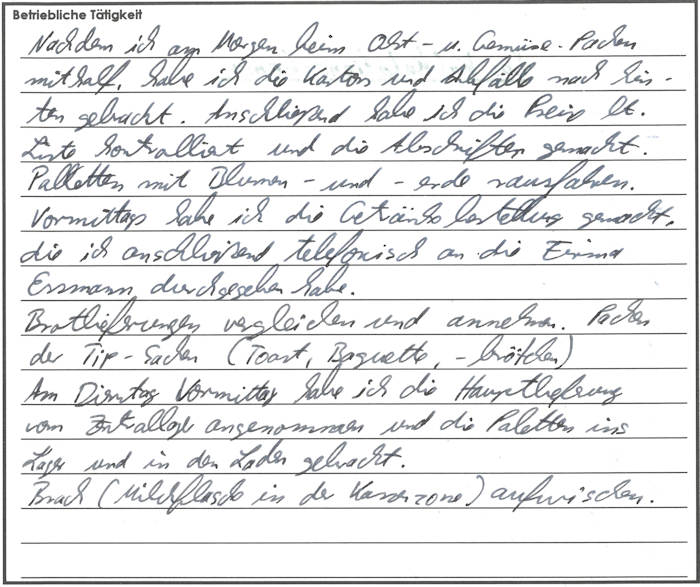 Betriebliche Tätigkeit
Nachdem ich am Morgen beim Obst- u. Gemüse-Packen
mithalf, habe ich die Kartons und Abfälle nach hin-
ten gebracht. Anschließend habe ich die Preise lt.
Liste kontrolliert und die Abschriften gemacht.
Palletten mit Blumen- und -erde rausfahren.
Vormittags habe ich die Getränkebestellung gemacht,
die ich anschließend telefonisch an die Firma
Ensmann durchgegeben habe.
Brotlieferungen vergleichen und annehmen. Packen
der Tip-Sachen (Toast, Baguette, -brötchen)
Am Dienstag Vormittag habe ich die Hauptlieferung
vom Zentrallager angenommen und die Paletten ins
Lager und in den Laden gebracht.
Bruch (Milchflasche in der Kassenzone) aufwischen.